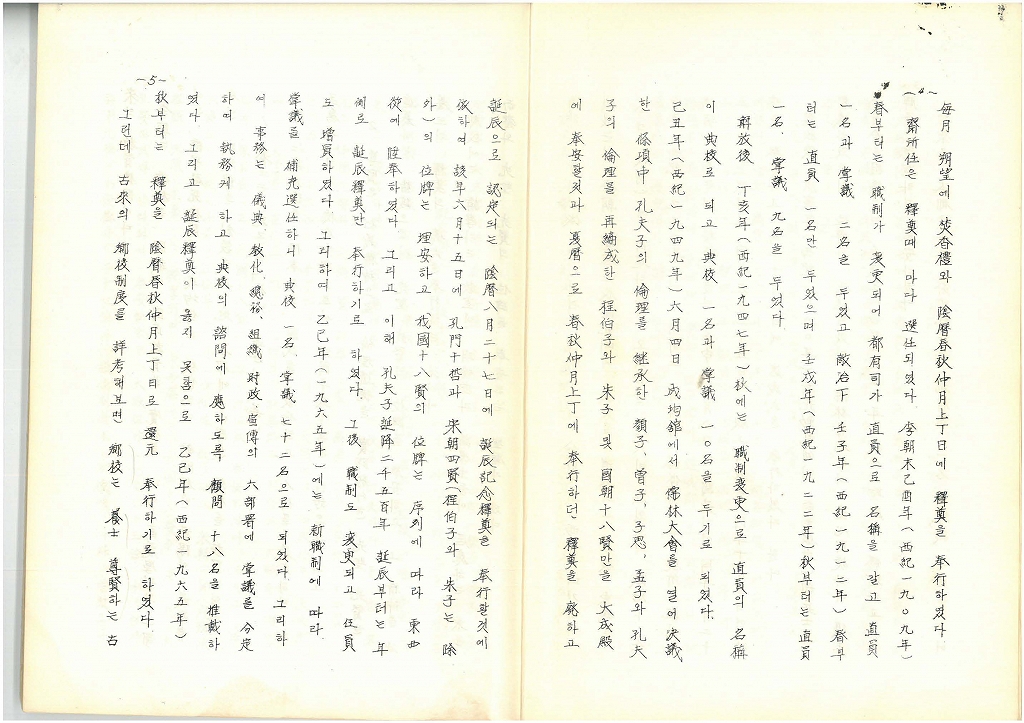 -4-
每月 朔望에 焚香禮와 陰曆春秋仲月上丁日에 釋奠을 奉行하였다
(齋所任은 釋奠때 마다 選任되였다 李朝末己酉年(西紀一九0九年)
春부터는 職制가 変更되어 都有司가 直員으로 名稱을 갈고 直員
一名과 掌議 二名을 두었고 敵治下 壬子年(西紀一九一二年)春부
터는 直員 一名만 두었으며 壬戌年(西紀一九二二年)秋부터는 直員
一名. 掌議 九名을 두었다.
解放後 丁亥年(西紀一九四七年)秋에는 職制変更으로 直員의 名稱
이 典校로 되고 典校 一名과 掌議 一0名을 두기로 되였다.
己丑年(西紀一九四九年)六月四日 成均館에서 儒林大會를 열어 决議
한 條項中 孔夫子의 倫理를 継承한 顔子、曾子、子思、孟子와 孔夫
子의 倫理를 再編成한 程伯子와 朱子 및 國朝十八賢만을 大成殿
에 奉安할것과 夏曆으로 春秋仲月上丁에 奉行하던 釋奠을 廃하고
-5-
誕辰으로 認定되는 陰曆八月二十七日에 誕辰記念釋奠을 奉行할것에
依하여 該年六月十五日에 孔門十哲과 宋朝四賢(程伯子와 朱子는 除
外)의 位牌는 埋安하고 我國十八賢의 位牌는 序列에 따라 東西
從에 陞奉하였다. 그리고 이해 孔夫子誕降二千五百年 誕辰부터는 年
例로 誕辰釋奠만 奉行하기로 하였다. 그後 職制도 変更되고 任員
도 增員하였다. 그리하여 乙巳年(一九六五年)에는 新職制에 따라
掌議를 補充選任하니 典校 一名. 掌議 七十二名으로 되였다. 그리하
여 事務는 儀典、敎化、總務、組織、財政、宣傳의 六部署에 掌議를 分定
하여 執務케 하고 典校의 諮問에 應하도록 顧問 十八名을 推戴하
였다. 그리고 誕辰釋奠이 옳지 못함으로 乙巳年(西紀一九六五年)
秋부터는 釋奠을 陰曆春秋仲月上丁日로 還元 奉行하기로 하였다.
그런데 古來의 鄕校制度를 詳考해보면 鄕校는 養士 尊賢하는 古